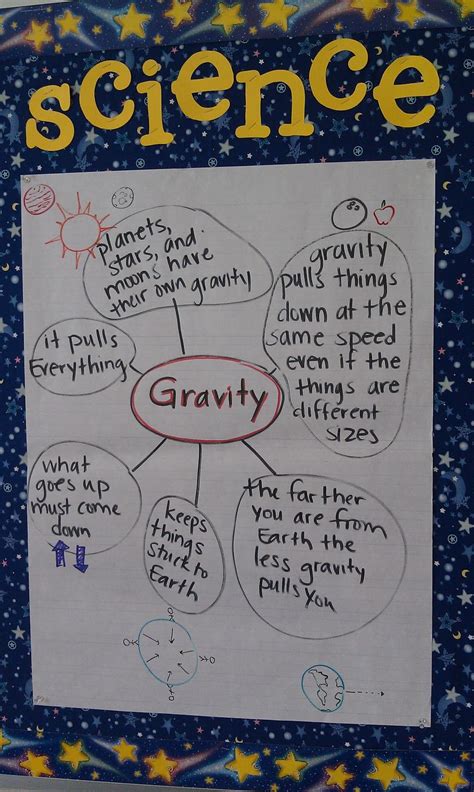 science
planets,
stars, and
moons have
their own gravity
gravity
pulls things
down at the
same speed
even if the
things are
different
sizes
it pulls
Everything
Gravity
what
goes up
must come
down
keeps
things
stuck to
Earth
the farther
you are from
Earth the
less gravity
pulls you